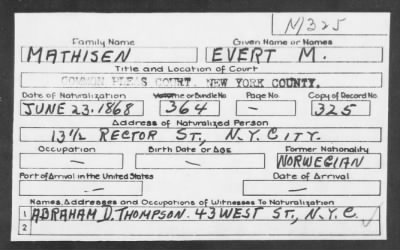 N/325
Family Name Given Name or Names
MATHISEN EVERT M.
Title and Location of Court
COMMON PLEAS COURT, NEW YORK COUNTY.
Date of Naturalization Volume or Bundle No Page No Copy of Record No
JUNE 23.1868 364 — 325
Address of Naturalized Person
13½ RECTOR ST., N.Y. CITY.
Occupation Birth Date or Age Former Nationality
— — NORWEGIAN
Port of Arrival in the United States Date of Arrival
— —
Names, Addresses and Occupations of Witnesses To Naturalization
1 ABRAHAM D. THOMPSON. 43 WEST ST., N.Y.C.
2